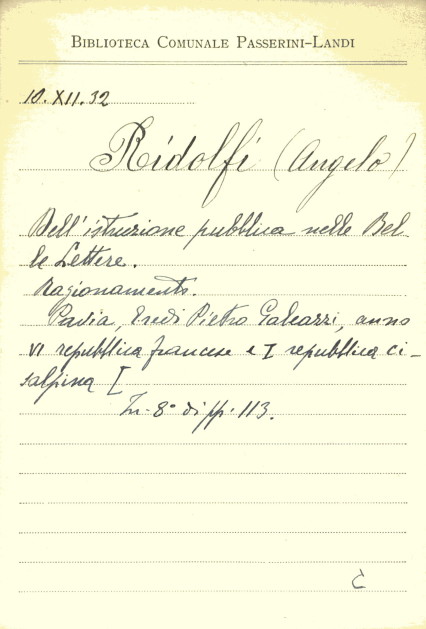 BIBLIOTECA COMUNALE PASSERINI-LANDI
10.XII.32
Ridolfi (Angelo)
Dell'istruzione pubblica nelle Bel
le Lettere.
Ragionamento.
Pavia, Eredi Pietro Galeazzi, anno
VI repubblica francese e I repubblica ci-
salpina [
In-8° di pp. 113.